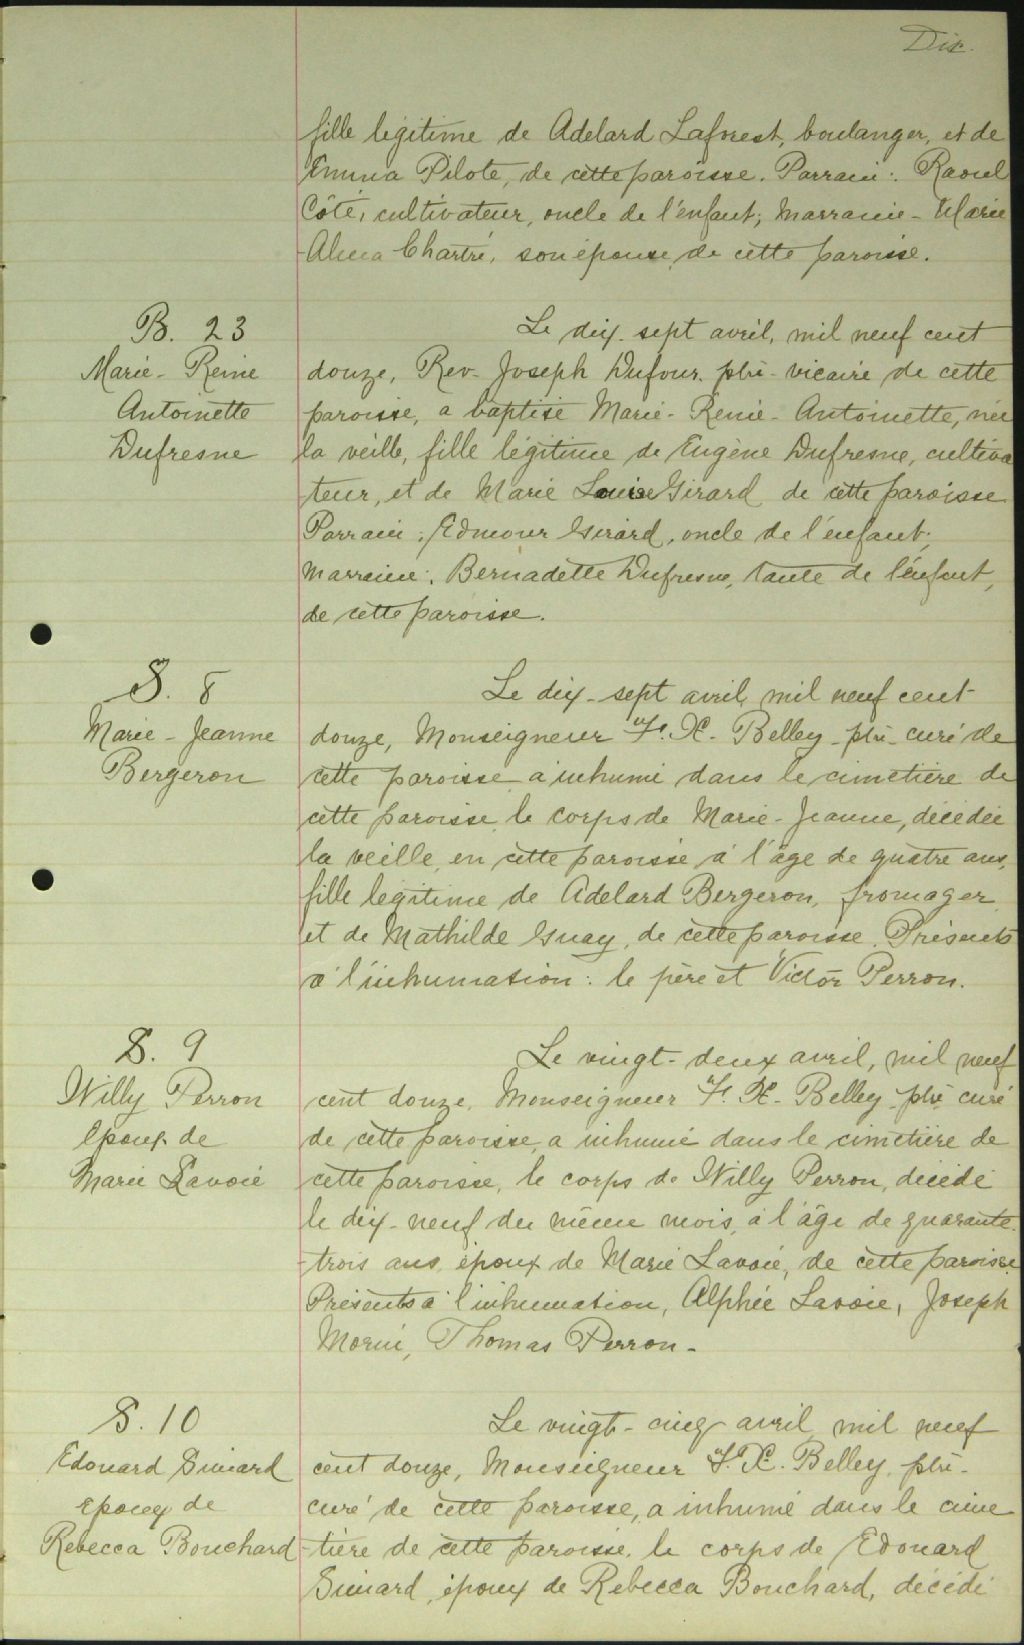 Dix.
fille légitime de Adelard Laforest, boulanger, et de
Emma Pilote, de cette paroisse. Parrain: Raoul
Côté, cultivateur, oncle de l'enfant; Marraine - Marie
Alma Chartré, son épouse, de cette paroisse.
B. 23
Marie - Reine
Antoinette
Dufresne
Le dix-sept avril, mil neuf cent
douze, Rev. Joseph Dufour, ptre - vicaire de cette
paroisse, a baptisé Marie - Reine - Antoinette, née
la veille, fille légitime de Eugène Dufresne, cultiva
teur, et de Marie Louise Girard de cette paroisse
Parrain: Edmour Girard, oncle de l'enfant;
Marraine: Bernadette Dufresne, tante de l'enfant,
de cette paroisse.
S. 8
Marie - Jeanne
Bergeron
Le dix-sept avril, mil neuf cent
douze, Monseigneur F. X. Belley - ptre - curé de
cette paroisse a inhumé dans le cimetière de
cette paroisse, le corps de Marie - Jeanne, décédée
la veille, en cette paroisse à l'âge de quatre ans,
fille légitime de Adelard Bergeron, fromager,
et de Mathilde Guay, de cette paroisse. Présents
à l'inhumation: le père et Victor Perron.
S. 9
Willy Perron
époux de
Marie Lavoie
Le vingt-deux avril, mil neuf
cent douze, Monseigneur F. X. Belley ptre curé
de cette paroisse, a inhumé dans le cimetière de
cette paroisse, le corps de Willy Perron, décédé
le dix-neuf du même mois, à l'âge de quarante
-trois ans, époux de Marie Lavoie, de cette paroisse.
Présents à l'inhumation, Alphée Lavoie, Joseph
Morin, Thomas Perron.
S. 10
Edouard Simard
époux de
Rebecca Bouchard
Le vingt-cinq avril, mil neuf
cent douze, Monseigneur F. X. Belley, ptre -
curé de cette paroisse, a inhumé dans le cime
-tière de cette paroisse, le corps de Edouard
Simard, époux de Rebecca Bouchard, décédé